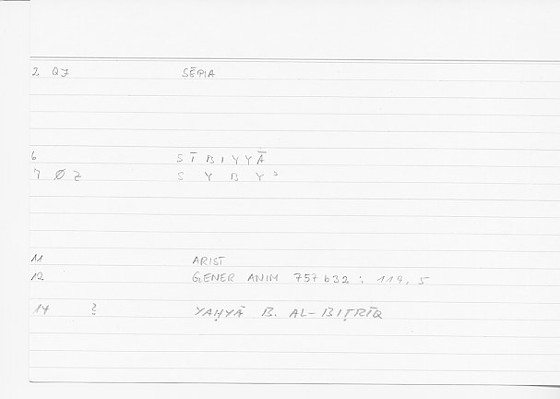 2 QZ SĒPIA
6 SĪBIYYĀ
7 Ø Z S Y B Y ʾ
11 ARIST
12 GENER ANIM 757b32 : 119, 5
14 ? YAḤYĀ B. AL-BIṬRĪQ